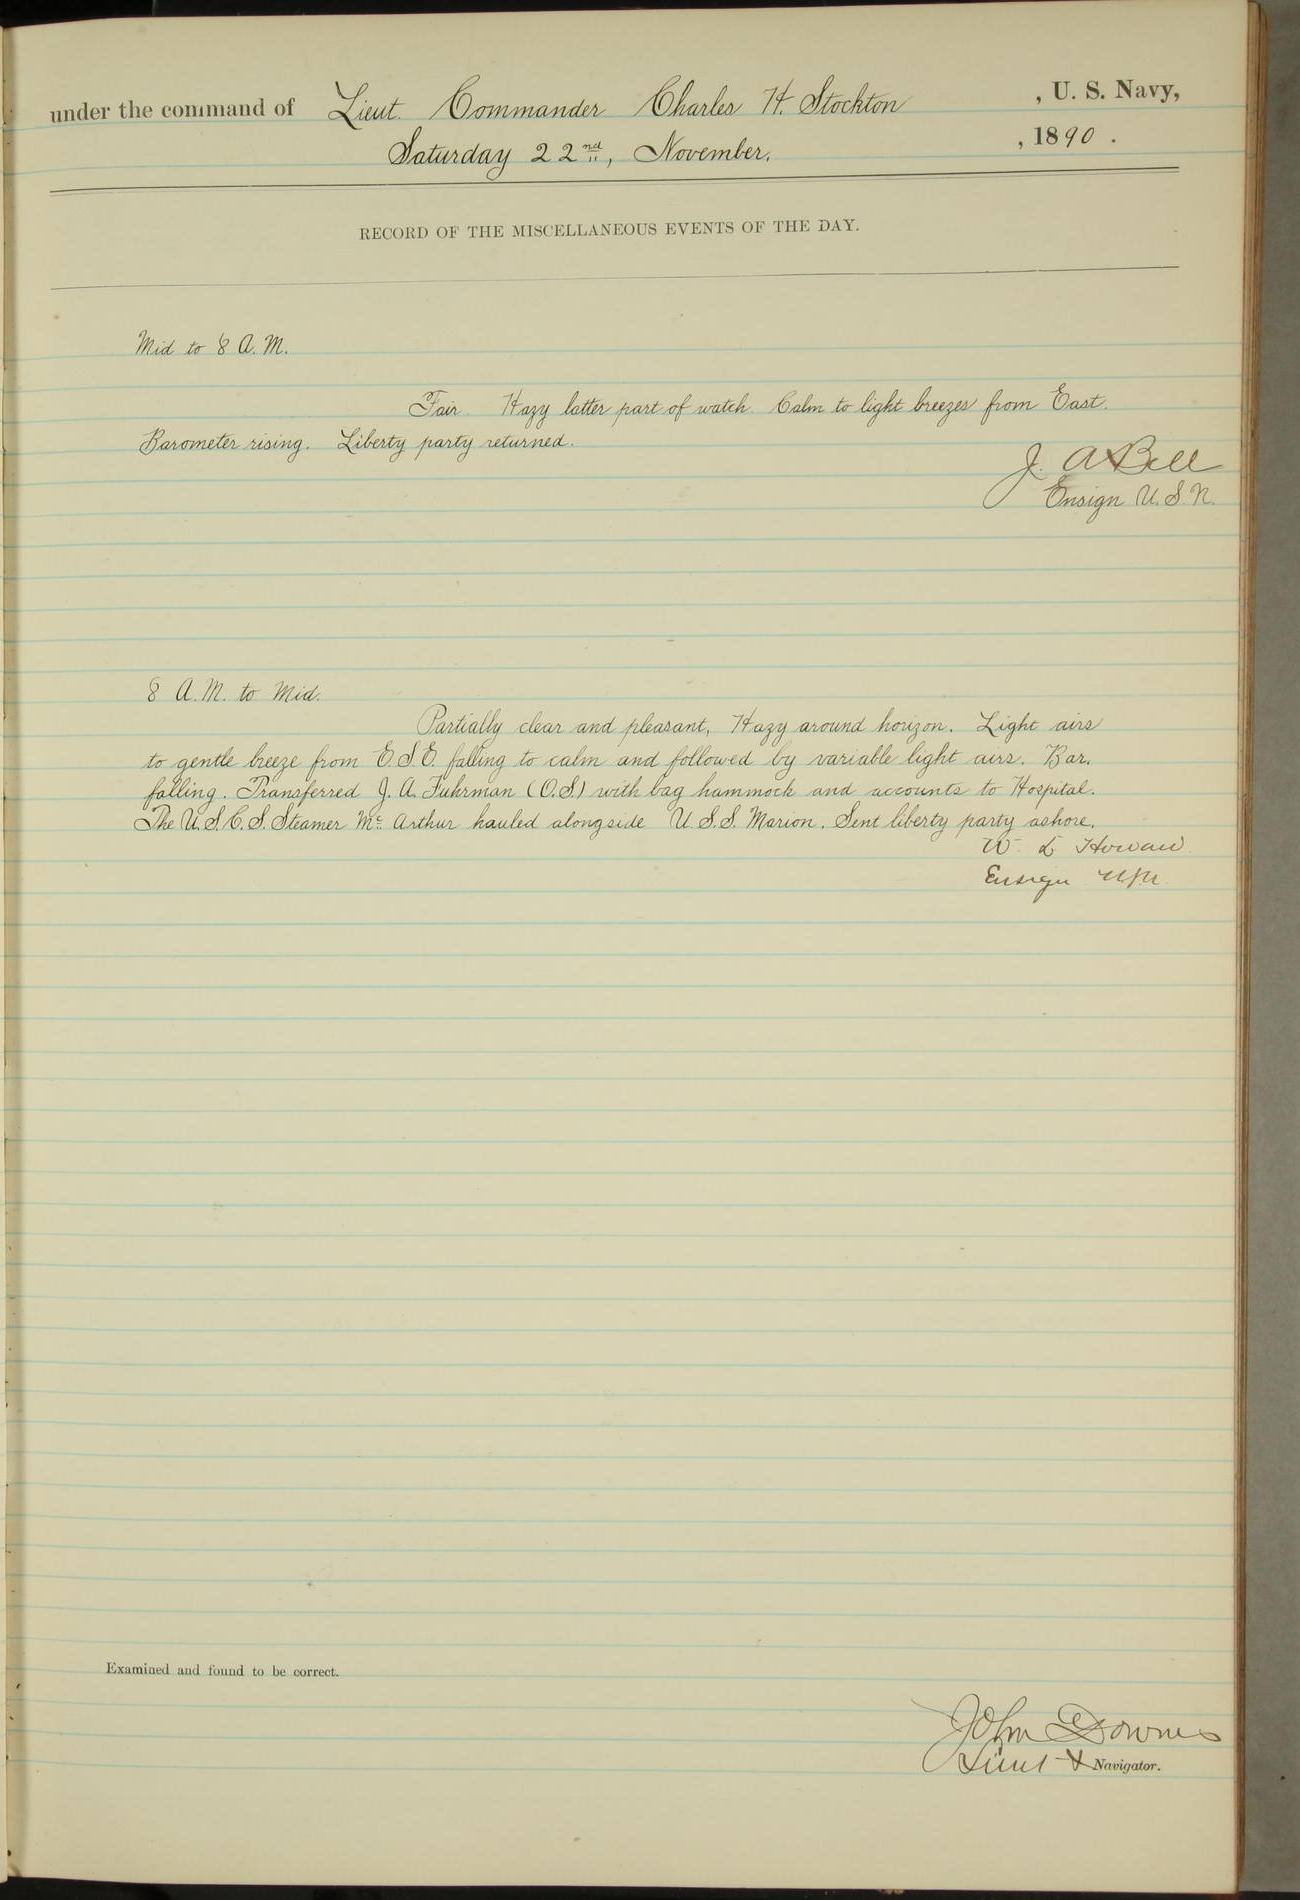 under the command of Lieut. Commander Charles H. Stockton , U. S. Navy,
Saturday 22nd, November. , 1890 .
RECORD OF THE MISCELLANEOUS EVENTS OF THE DAY.
Mid to 8 A.M.
Fair. Hazy latter part of watch. Calm to light breezes from East.
Barometer rising. Liberty party returned.
J. A Bell
Ensign U.S.N.
8 A.M. to Mid.
Partially clear and pleasant, Hazy around horizon. Light airs
to gentle breeze from E.S.E. falling to calm and followed by variable light airs. Bar.
falling. Transferred J. A. Fuhrman (O.S.) with bag hammock and accounts to Hospital.
The U.S.C.S. Steamer Mc Arthur hauled alongside U.S.S. Marion. Sent liberty party ashore.
W. L Howard
Ensign USN
Examined and found to be correct.
John Downes
Lieut & Navigator.